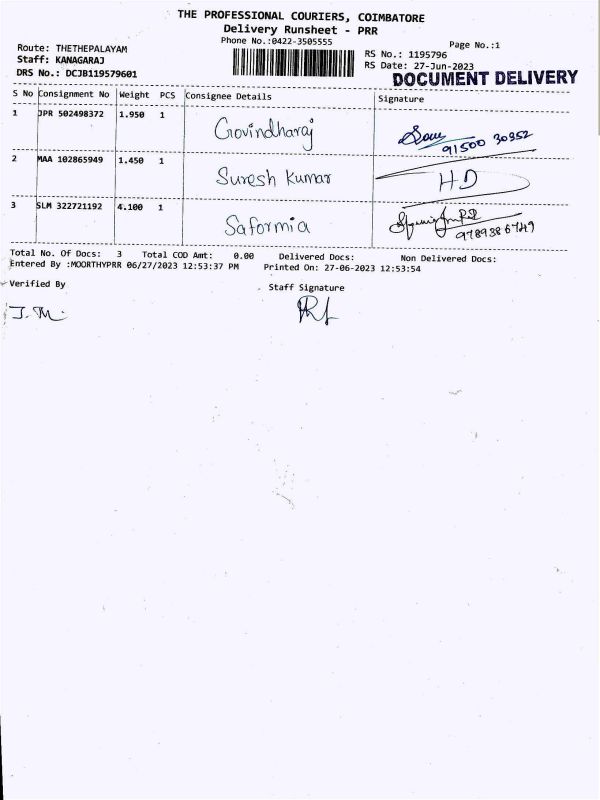 THE PROFESSIONAL COURIERS, COIMBATORE
Delivery Runsheet - PRR
Phone No.:0422-3505555
Page No.:1
Route: THETHEPALAYAM
Staff: KANAGARAJ
DRS No.: DCJB119579601
RS No.: 1195796
RS Date: 27-Jun-2023
DOCUMENT DELIVERY
S No Consignment No Weight PCS Consignee Details Signature
1 JPR 502498372 1.950 1 Govindharaj
91500 30952
2 MAA 102865949 1.450 1 Suresh Kumar HD
3 SLM 322721192 4.100 1 Saformia
9789386749
Total No. Of Docs: 3 Total COD Amt: 0.00 Delivered Docs: Non Delivered Docs:
Entered By :MOORTHYPRR 06/27/2023 12:53:37 PM Printed On: 27-06-2023 12:53:54
Verified By Staff Signature
J. M.